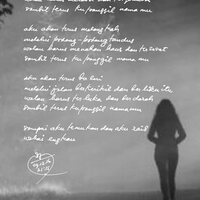 sambil terus ku panggil nama mu
aku akan terus melangkah
melalui padang - padang tandus
walau harus menahan haus dan
sambil terus ku panggil nama mu
aku akan terus berlari
melalui jalan berkerikil dan
walau harus ter luka dan ber darah
sambil terus ku panggil nama mu
sampai aku temukan dan aku raih